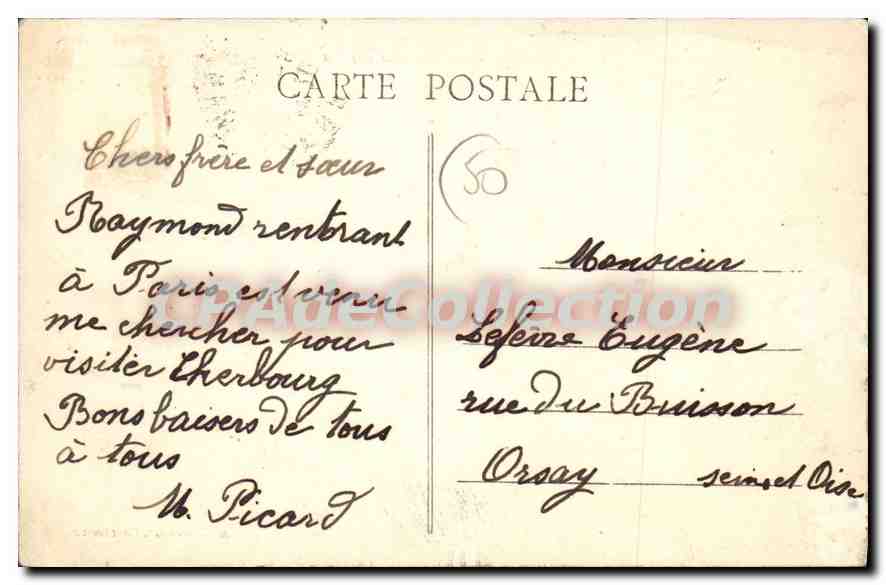 CARTE POSTALE
Chers frère et sœur
Raymond rentrant
à Paris est venu
me chercher pour
visiter Cherbourg
Bons baisers de tous
à tous
M. Picard
50
Monsieur
Lefèvre Eugène
rue du Buisson
Orsay seine et Oise
CPAdeCollection.com